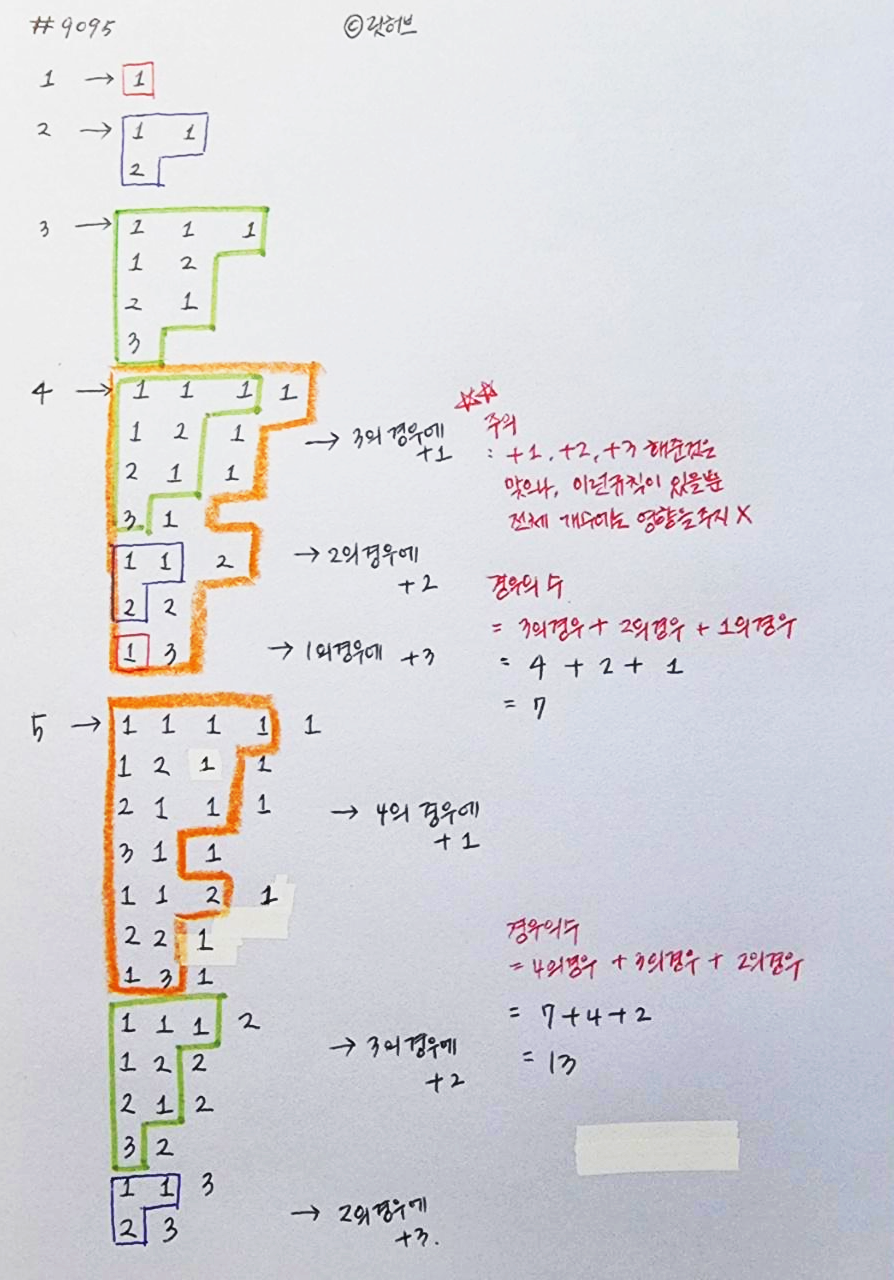 #9095
©랏허브
1 → 1
2 → 1 1
2
3 → 1 1 1
1 2
2 1
3
4 → 1 1 1 1
1 2 1
2 1 1
3 1
→ 3의 경우에
+1
1 1 2
2 2
→ 2의 경우에
+2
1 3
→ 1의 경우에 +3
주의
: +1, +2, +3 해준것은
맞으나, 이런규칙이 있을뿐
전체 개수에는 영향을주지 X
경우의 수
= 3의경우 + 2의경우 + 1의경우
= 4 + 2 + 1
= 7
5 → 1 1 1 1 1
1 2 1 1
2 1 1 1
3 1 1
1 1 2 1
2 2 1
1 3 1
→ 4의 경우에
+1
1 1 1 2
1 2 2
2 1 2
3 2
→ 3의 경우에
+2
1 1 3
2 3
→ 2의경우에
+3.
경우의수
= 4의경우 + 3의경우 + 2의경우
= 7+4+2
= 13